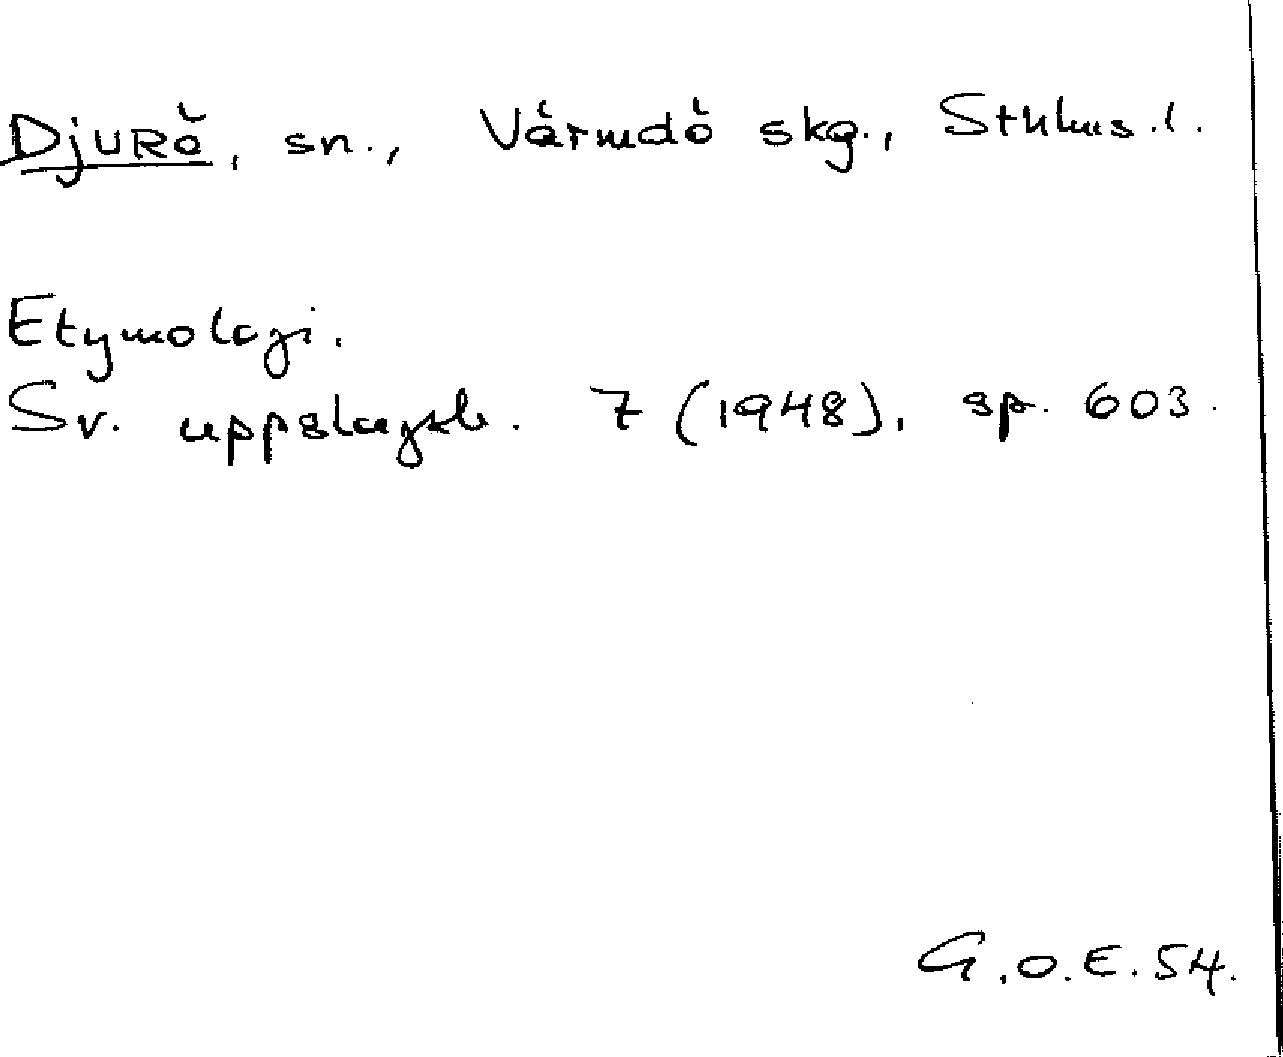 Djurö, sn., Värmdö skg., Sthlms. l.
Etymologi.
Sv. uppslagsb. 7 (1948), sp. 603.
G.O.E. 54.